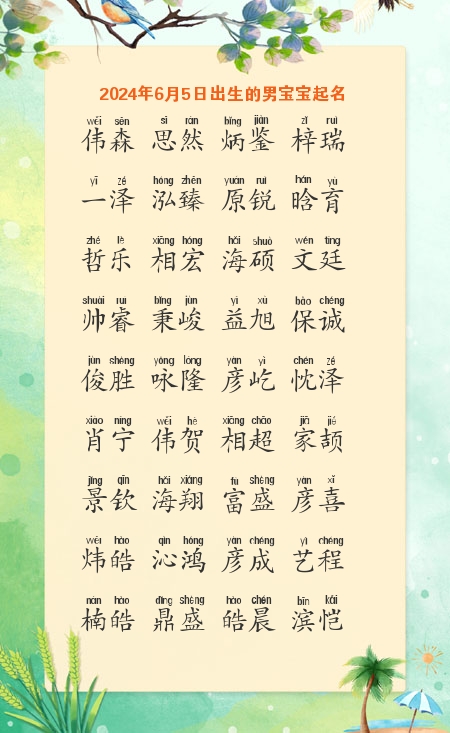 2024年6月5日出生的男宝宝起名
wěi sēn sī rán bǐng jiàn zǐ ruì
伟森 思然 炳鉴 梓瑞
yī zé hóng zhēn yuán ruì hán yù
一泽 泓臻 原锐 晗育
zhé lè xiāng hóng hǎi shuò wén tíng
哲乐 相宏 海硕 文廷
shuài ruì bǐng jùn yì xù bǎo chéng
帅睿 秉峻 益旭 保诚
jùn shèng yǒng lóng yàn yì chén zé
俊胜 咏隆 彦屹 忱泽
xiào níng wěi hè xiāng chāo jiā jié
肖宁 伟贺 相超 家颉
jǐng qīn hǎi xiáng fù shèng yàn xǐ
景钦 海翔 富盛 彦喜
wěi hào qìn hóng yàn chéng yì chéng
炜皓 沁鸿 彦成 艺程
nán hào dǐng shèng hào chén bīn kǎi
楠皓 鼎盛 皓晨 滨恺